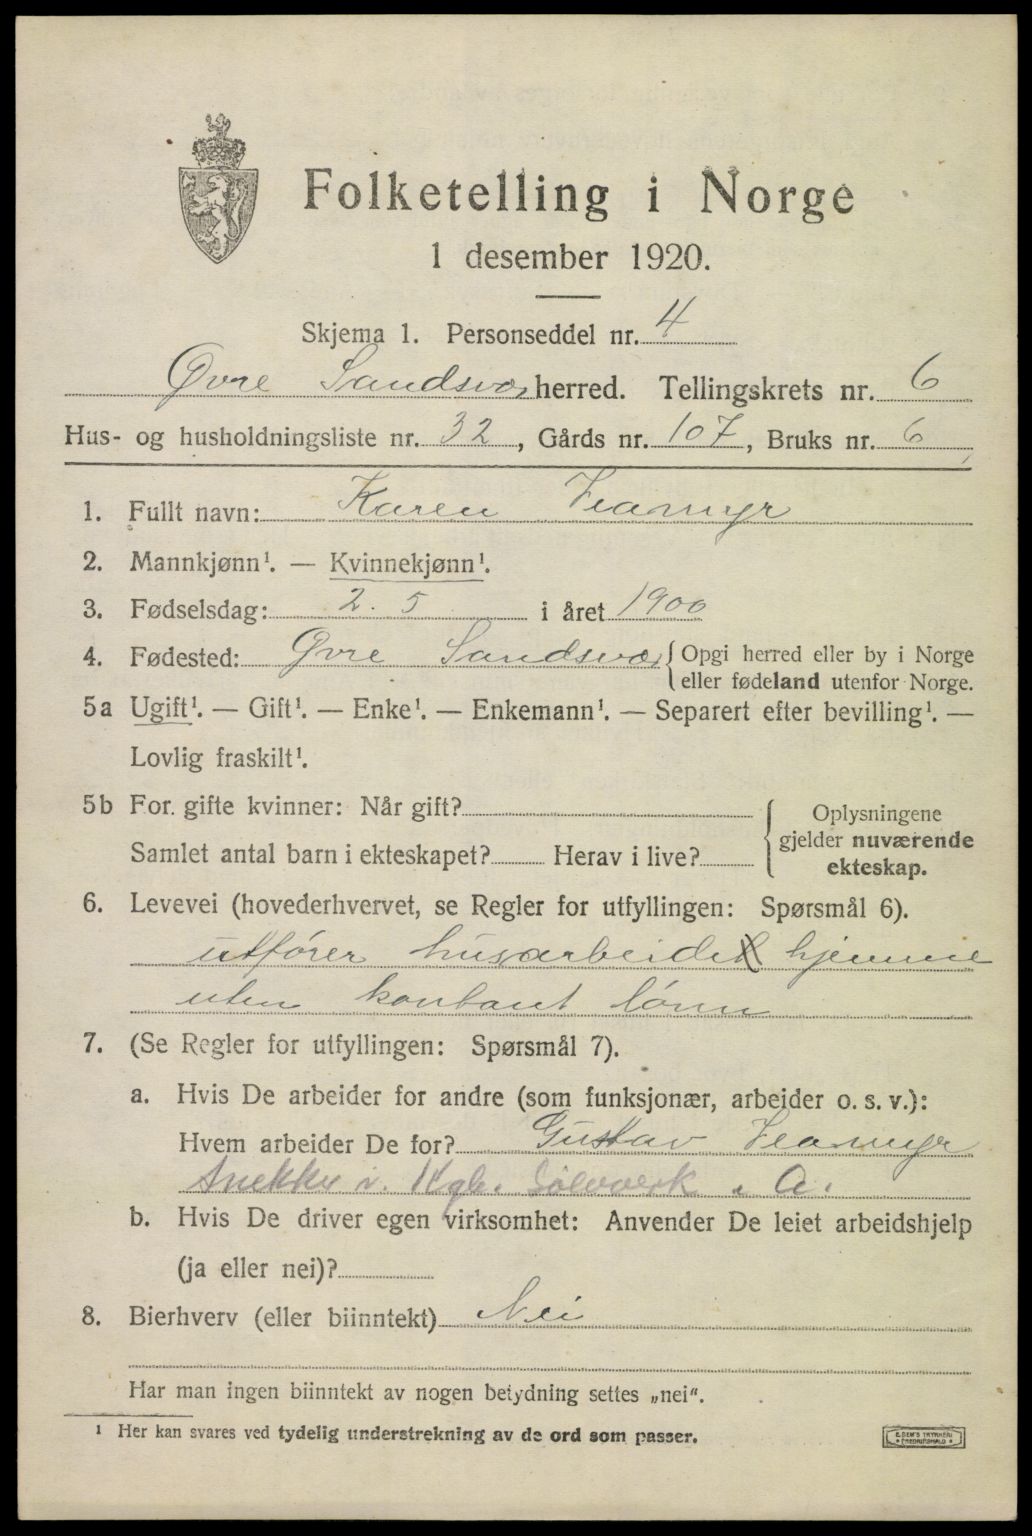 Folketelling i Norge
1 desember 1920.
Skjema 1. Personseddel nr. 4
Øvre Sandsvær herred. Tellingskrets nr. 6
Hus- og husholdningsliste nr. 32, Gårds nr. 107, Bruks nr. 6
1. Fullt navn: Karen Veamyr
2. Mannkjønn¹. — Kvinnekjønn¹.
3. Fødselsdag: 2. 5 i året 1900
4. Fødested: Øvre Sandsvær { Opgi herred eller by i Norge
eller fødeland utenfor Norge.
5a Ugift¹. — Gift¹. — Enke¹. — Enkemann¹. — Separert efter bevilling¹. —
Lovlig fraskilt¹.
5b For gifte kvinner: Når gift?
Samlet antal barn i ekteskapet? Herav i live?
{ Oplysningene
gjelder nuværende
ekteskap.
6. Levevei (hovederhvervet, se Regler for utfyllingen: Spørsmål 6).
utfører husarbeide hjemme
uten kontant lønn
7. (Se Regler for utfyllingen: Spørsmål 7).
a. Hvis De arbeider for andre (som funksjonær, arbeider o. s. v.):
Hvem arbeider De for? Gustav Veamyr
Snekker v. Kgb. Sølvverk. A.
b. Hvis De driver egen virksomhet: Anvender De leiet arbeidshjelp
(ja eller nei)?
8. Bierhverv (eller biinntekt) Nei
Har man ingen biinntekt av nogen betydning settes „nei".
¹ Her kan svares ved tydelig understrekning av de ord som passer.